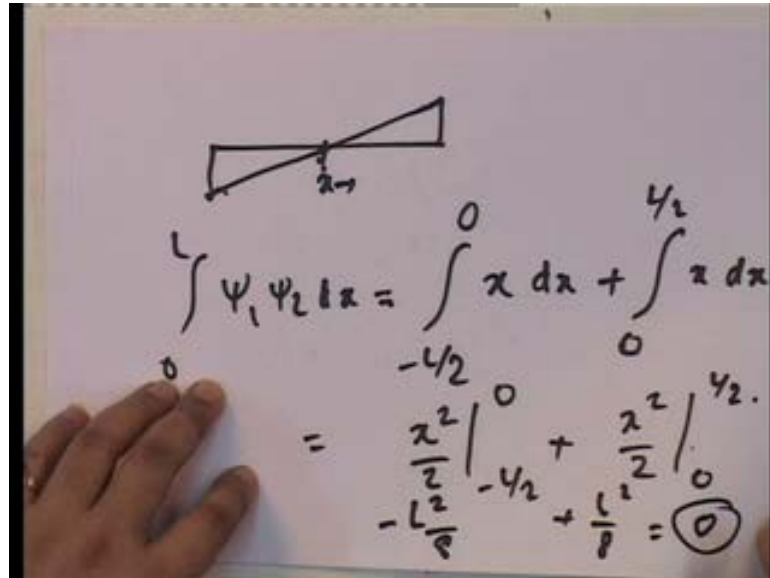 x→
∫₀ᴸ ψ₁ ψ₂ dx = ∫₋L/₂⁰ x dx + ∫₀ᴸ/² x dx
= x²/2 |₋L/₂⁰ + x²/2 |₀ᴸ/² .
-L²/8 + L²/8 = 0